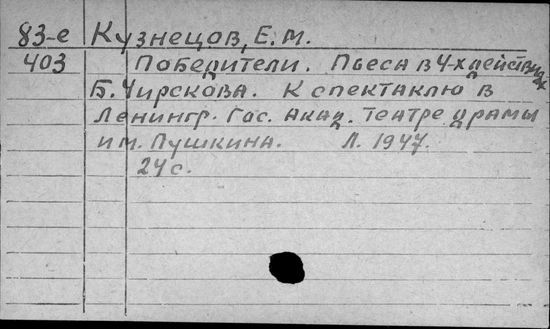 83-е Кузнецов, Е. М.
403 Победители. Пьеса в 4-х действиях
Б. Чирскова. К спектаклю в
Ленингр. Гос. Акад. театре драмы
им. Пушкина. Л. 1947.
24 с.